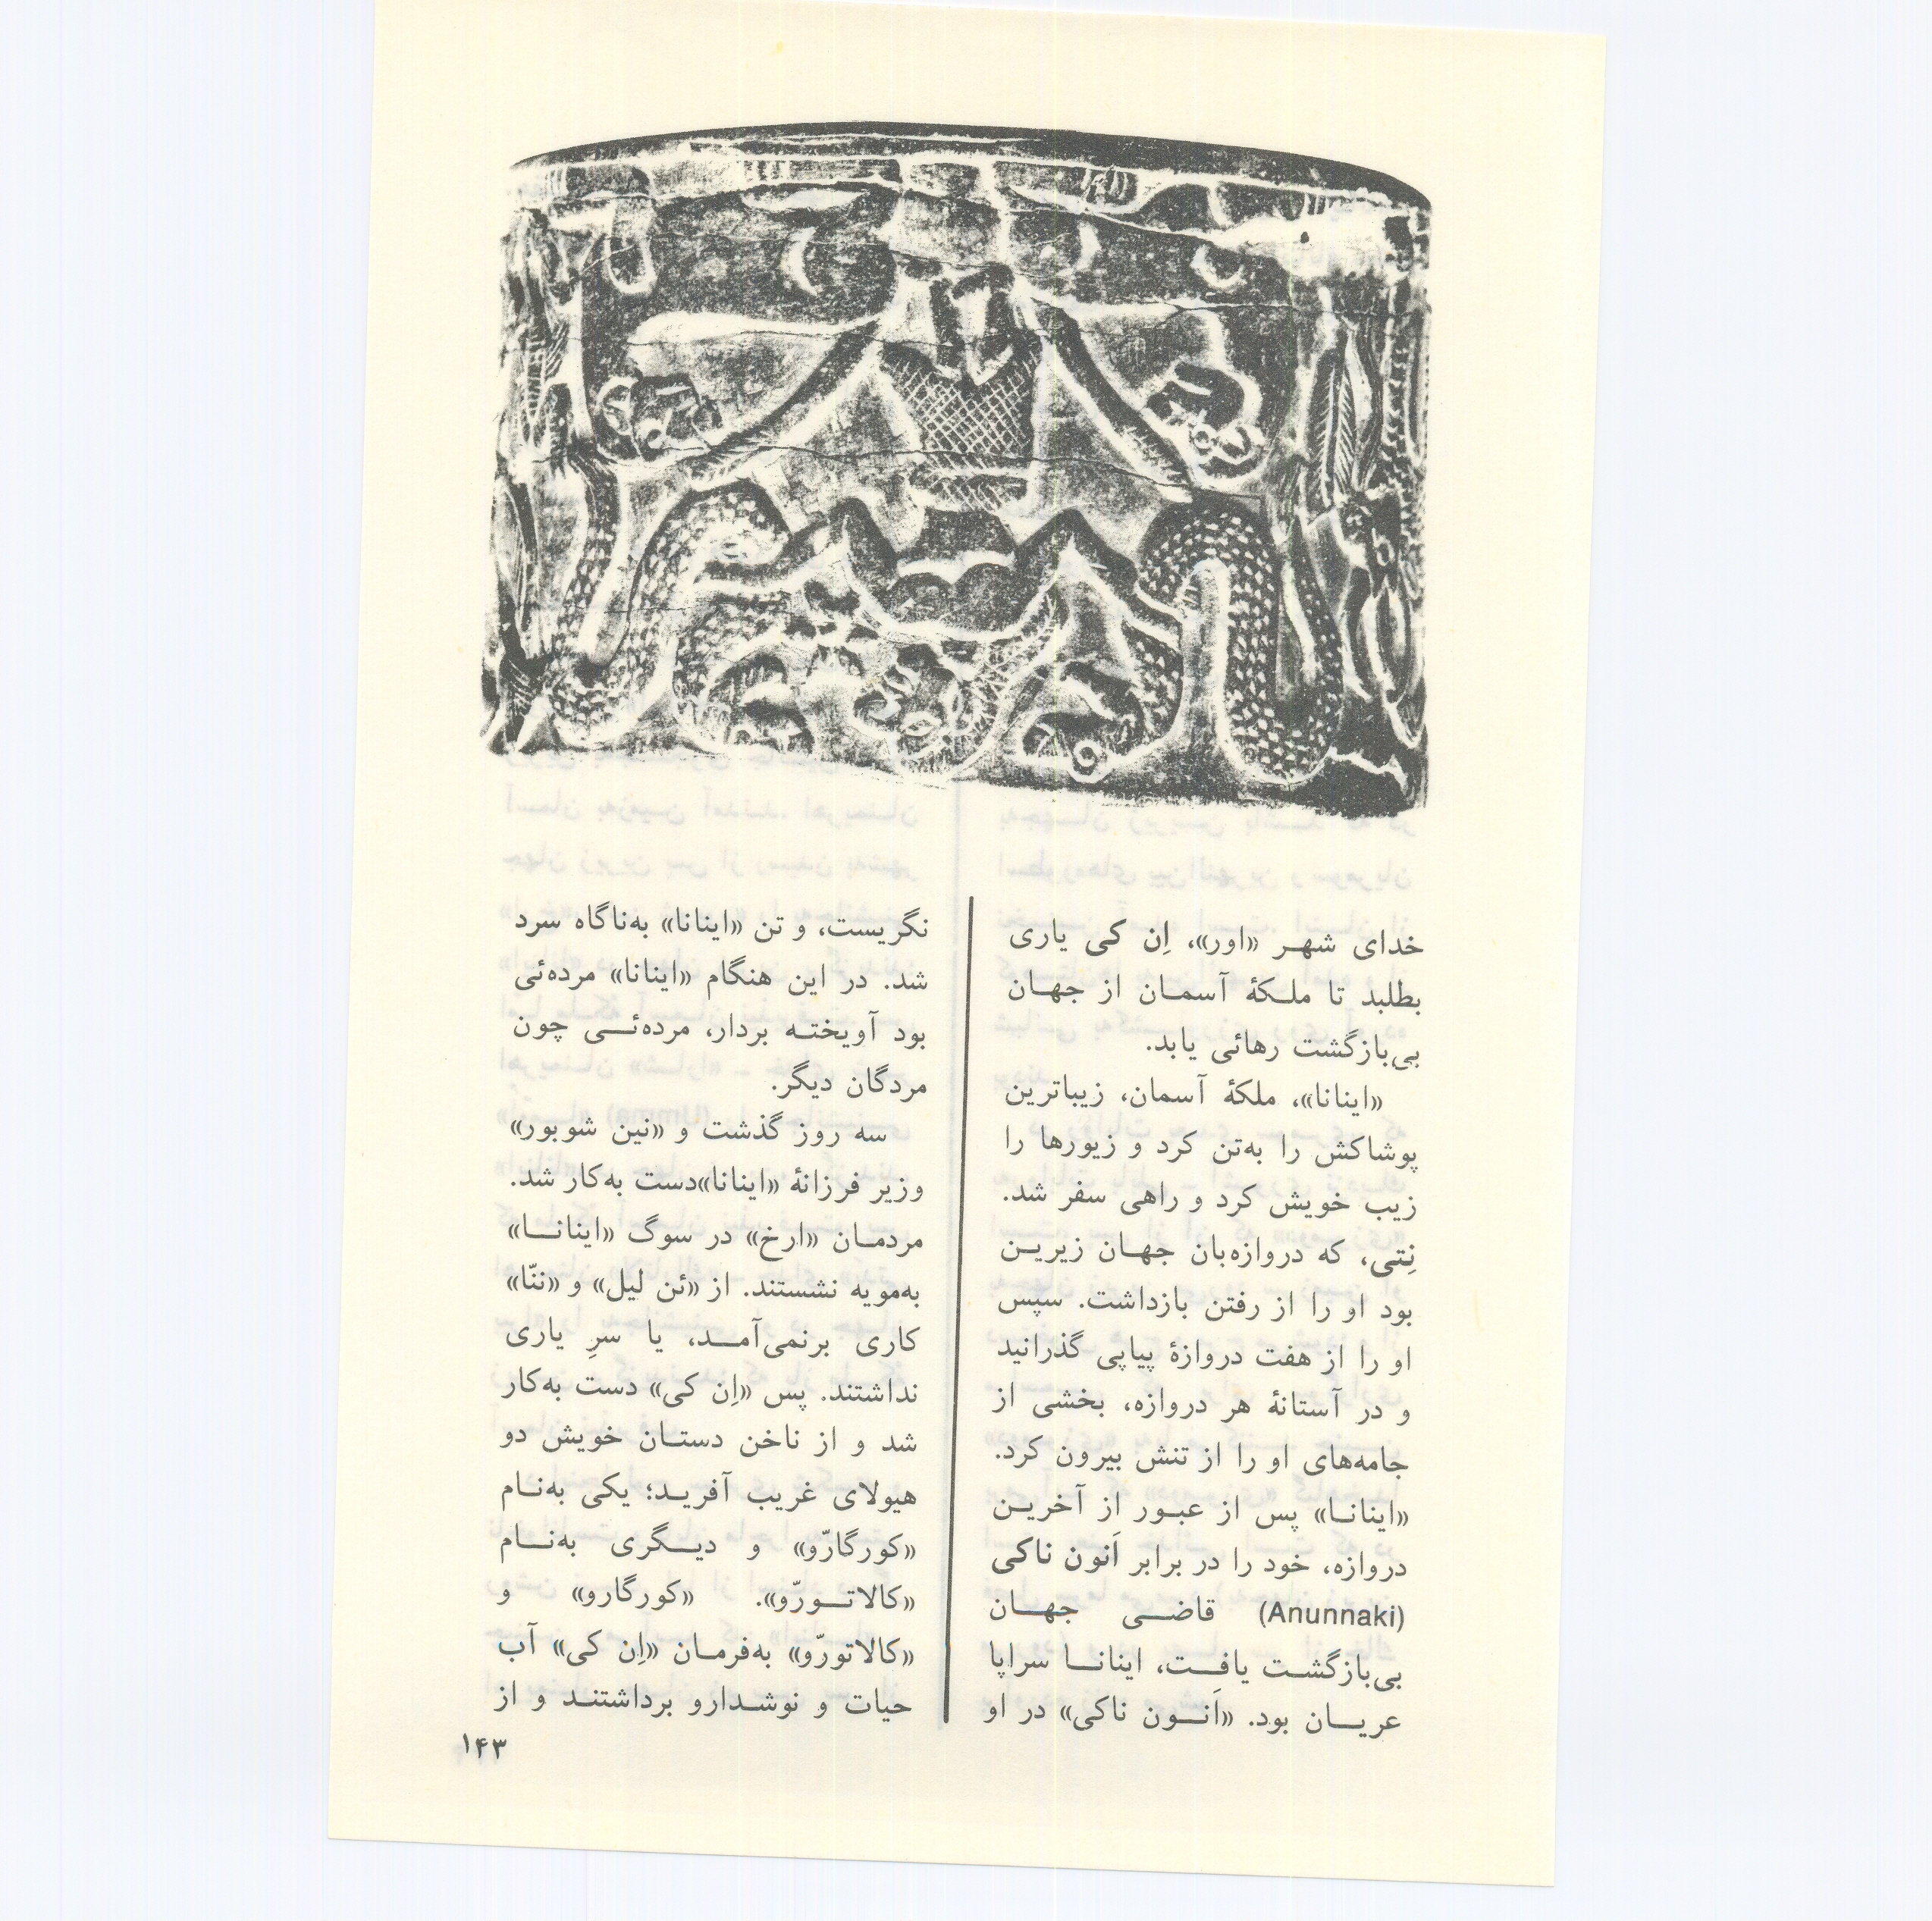 خدای شهر «اور»، اِن کی یاری
بطلبد تا ملکهٔ آسمان از جهان
بی‌بازگشت رهائی یابد.
«اینانا»، ملکهٔ آسمان، زیباترین
پوشاکش را به‌تن کرد و زیورها را
زیب خویش کرد و راهی سفر شد.
نِتی، که دروازه‌بان جهان زیرین
بود او را از رفتن بازداشت. سپس
او را از هفت دروازهٔ پیاپی گذرانید
و در آستانهٔ هر دروازه، بخشی از
جامه‌های او را از تنش بیرون کرد.
«اینانا» پس از عبور از آخرین
دروازه، خود را در برابر اَنون ناکی
(Anunnaki) قاضی جهان
بی‌بازگشت یافت، اینانا سراپا
عریان بود. «اَنون ناکی» در او
نگریست، و تن «اینانا» به‌ناگاه سرد
شد. در این هنگام «اینانا» مرده‌ئی
بود آویخته بردار، مرده‌ئی چون
مردگان دیگر.
سه روز گذشت و «نین شوبور»
وزیر فرزانهٔ «اینانا»دست به‌کار شد.
مردمان «ارخ» در سوگ «اینانا»
به‌مویه نشستند. از «ئن لیل» و «ننّا»
کاری برنمی‌آمد، یا سرِ یاری
نداشتند. پس «اِن کی» دست به‌کار
شد و از ناخن دستان خویش دو
هیولای غریب آفرید؛ یکی به‌نام
«کورگارّو» و دیگری به‌نام
«کالاتورّو». «کورگارو» و
«کالاتورّو» به‌فرمان «اِن کی» آب
حیات و نوشدارو برداشتند و از
۱۴۳